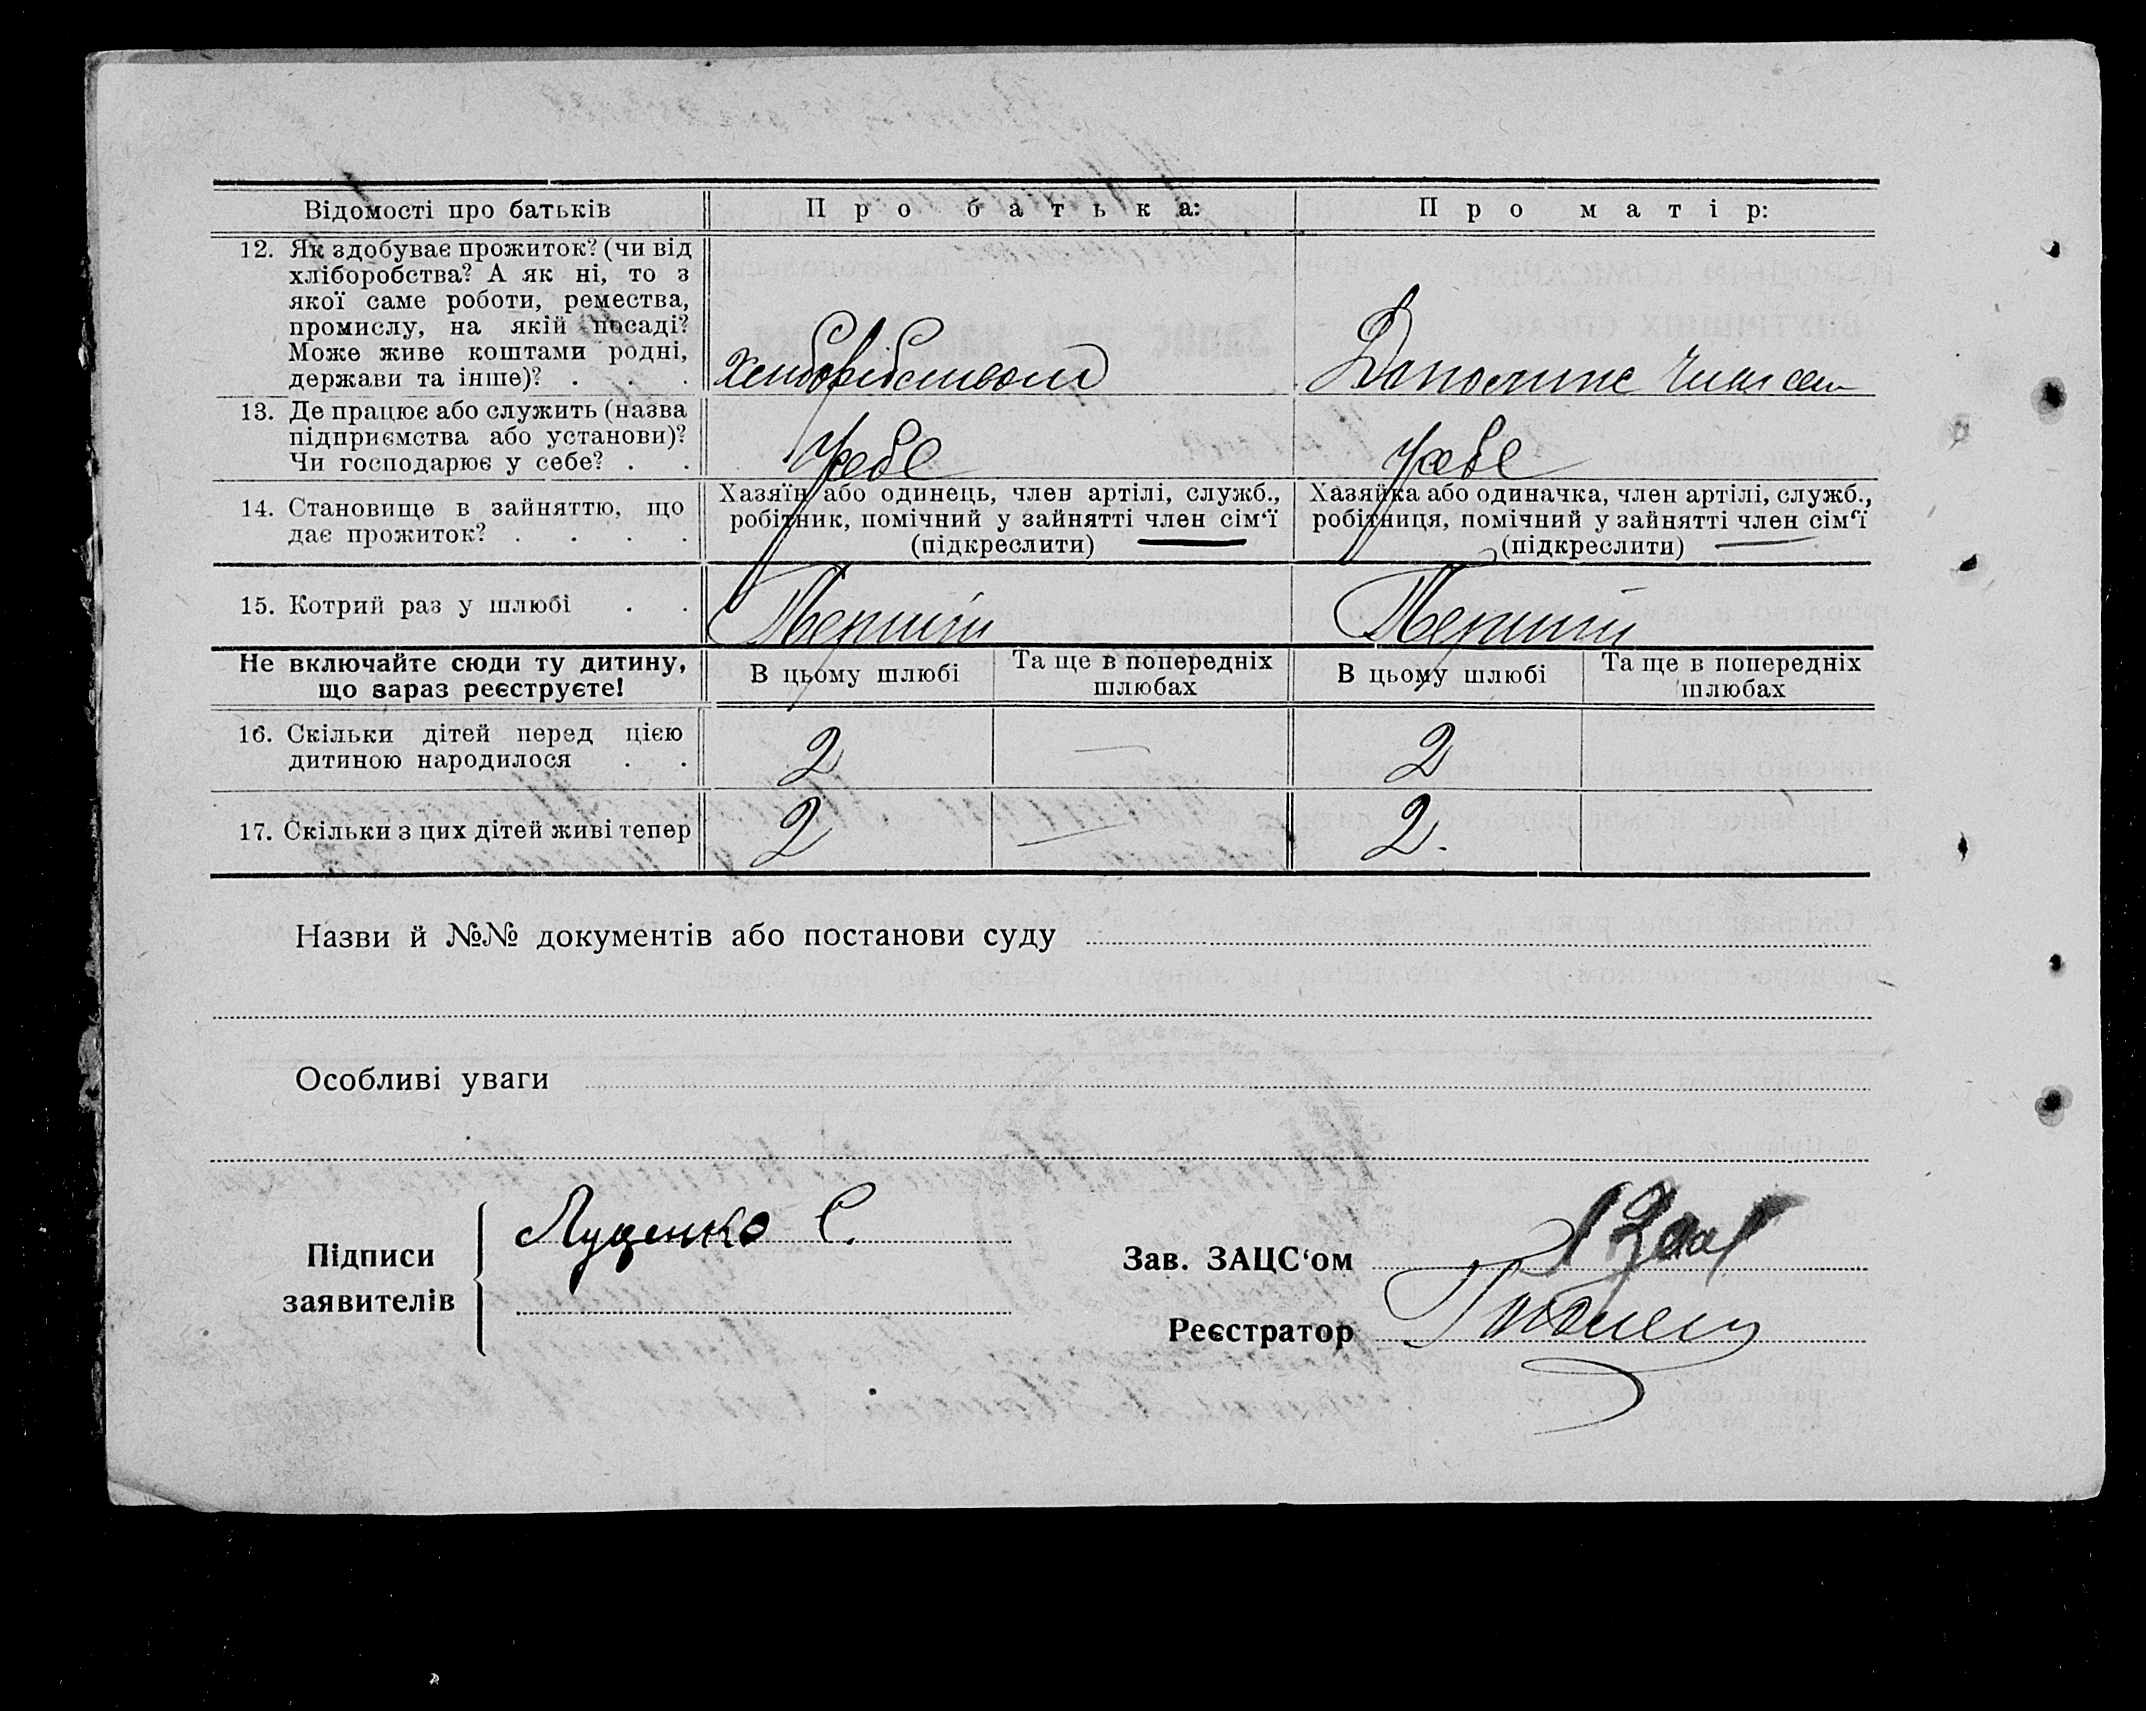 Відомості про батьків Про батька: Про матір:
12. Як здобуває прожиток? (чи від
хліборобства? А як ні, то з
якої саме роботи, ремества,
промислу, на якій посаді?
Може живе коштами родні,
держави та інше)? . . .
Хліборобством
13. Де працює або служить (назва
підприємства або установи)?
Чи господарює у себе? . .
У себе У себе
14. Становище в зайняттю, що
дає прожиток? . . . .
Хазяїн або одинець, член артілі, служб.,
робітник, помічний у зайнятті член сім‘ї
(підкреслити)
Хазяйка або одиначка, член артілі, служб.,
робітниця, помічний у зайнятті член сім‘ї
(підкреслити)
15. Котрий раз у шлюбі . . Перший Перший
Не включайте сюди ту дитину,
що зараз реєструєте!
В цьому шлюбі
Та ще в попередніх
шлюбах
В цьому шлюбі
Та ще в попередніх
шлюбах
16. Скільки дітей перед цією
дитиною народилося . .
2 — 2
17. Скільки з цих дітей живі тепер 2 — 2.
Назви й №№ документів або постанови суду
Особливі уваги
Підписи
заявителів
Луценко С.
Зав. ЗАЦС‘ом
Реєстратор